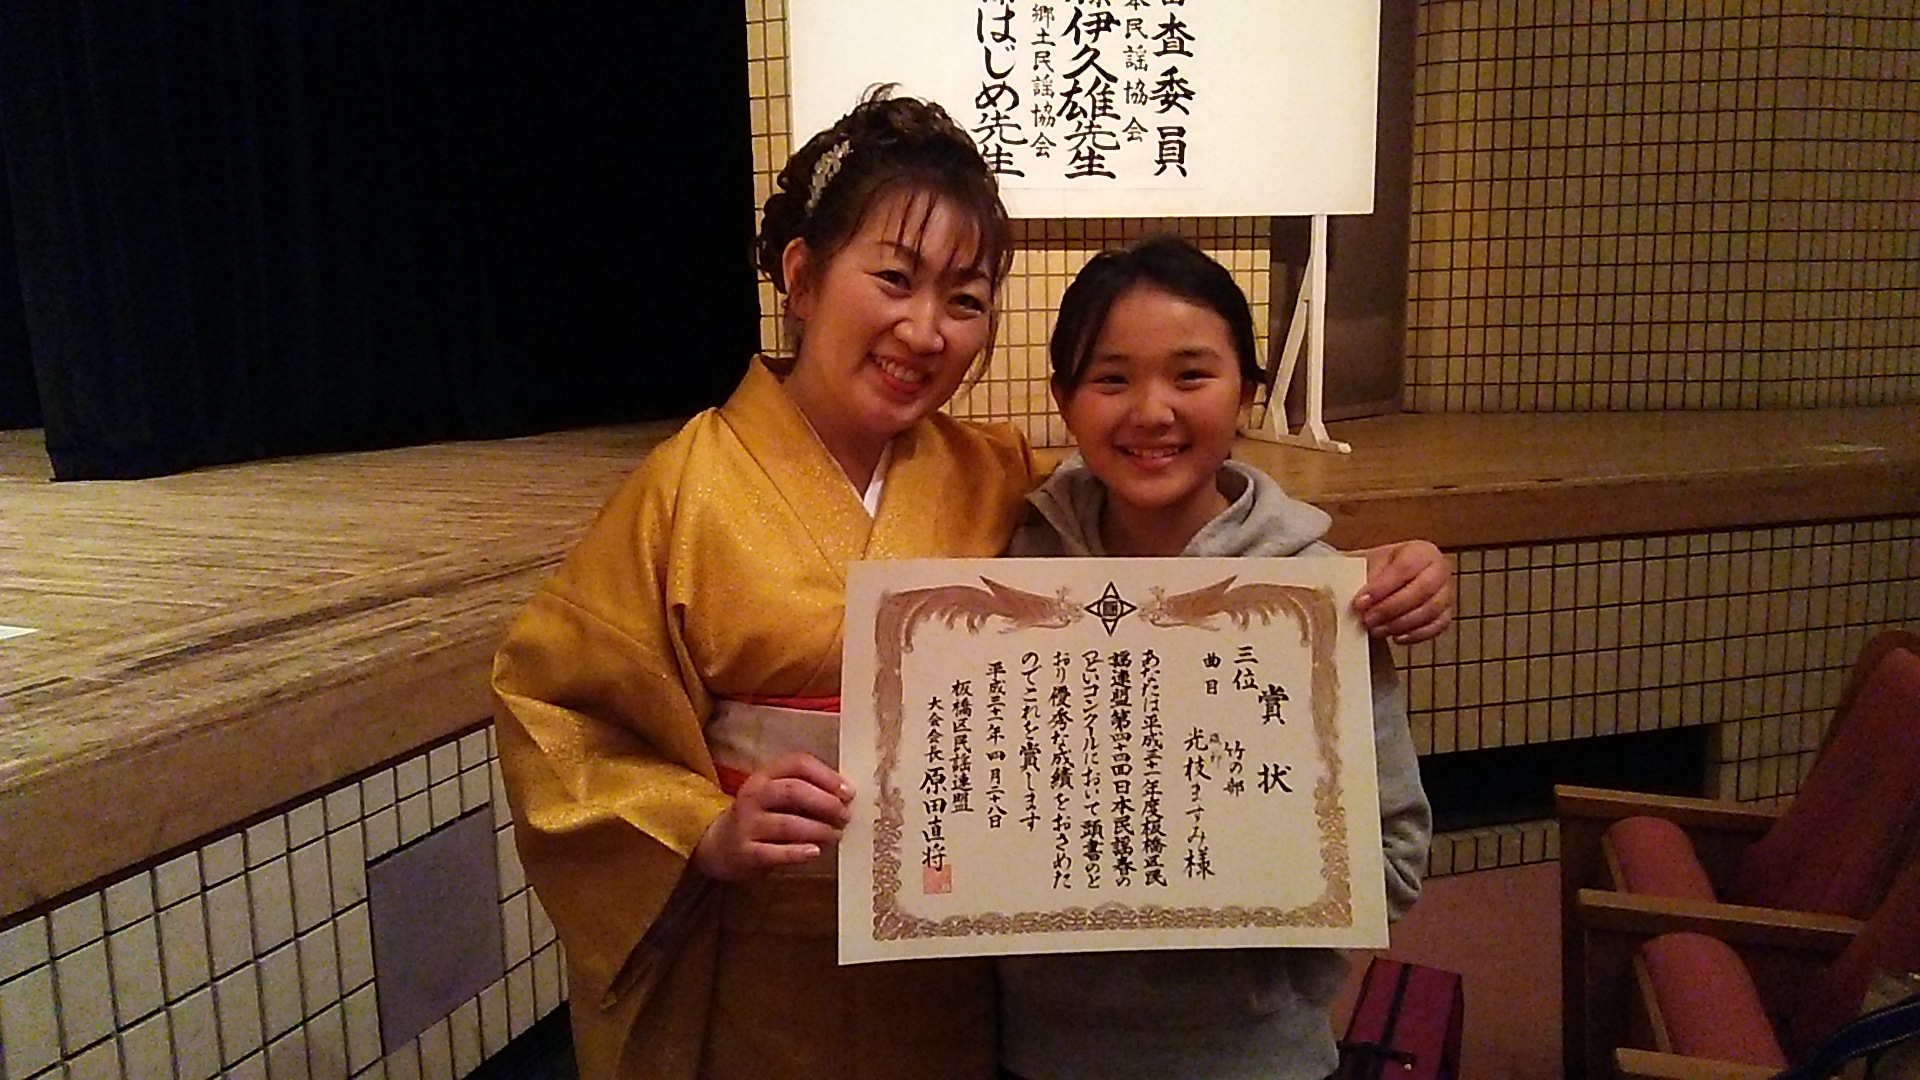 査委員
本民謡協会
伊久雄先生
郷土民謡協会
はじめ先生
賞状
三位 竹の部
曲目
光枝ますみ様
あなたは平成三十一年度板橋区民
謡連盟第四十四回日本民謡春の
つどいコンクールにおいて頭書のと
おり優秀な成績をおさめた
のでこれを賞します
平成三十一年四月二十八日
板橋区民謡連盟
大会会長 原田直将